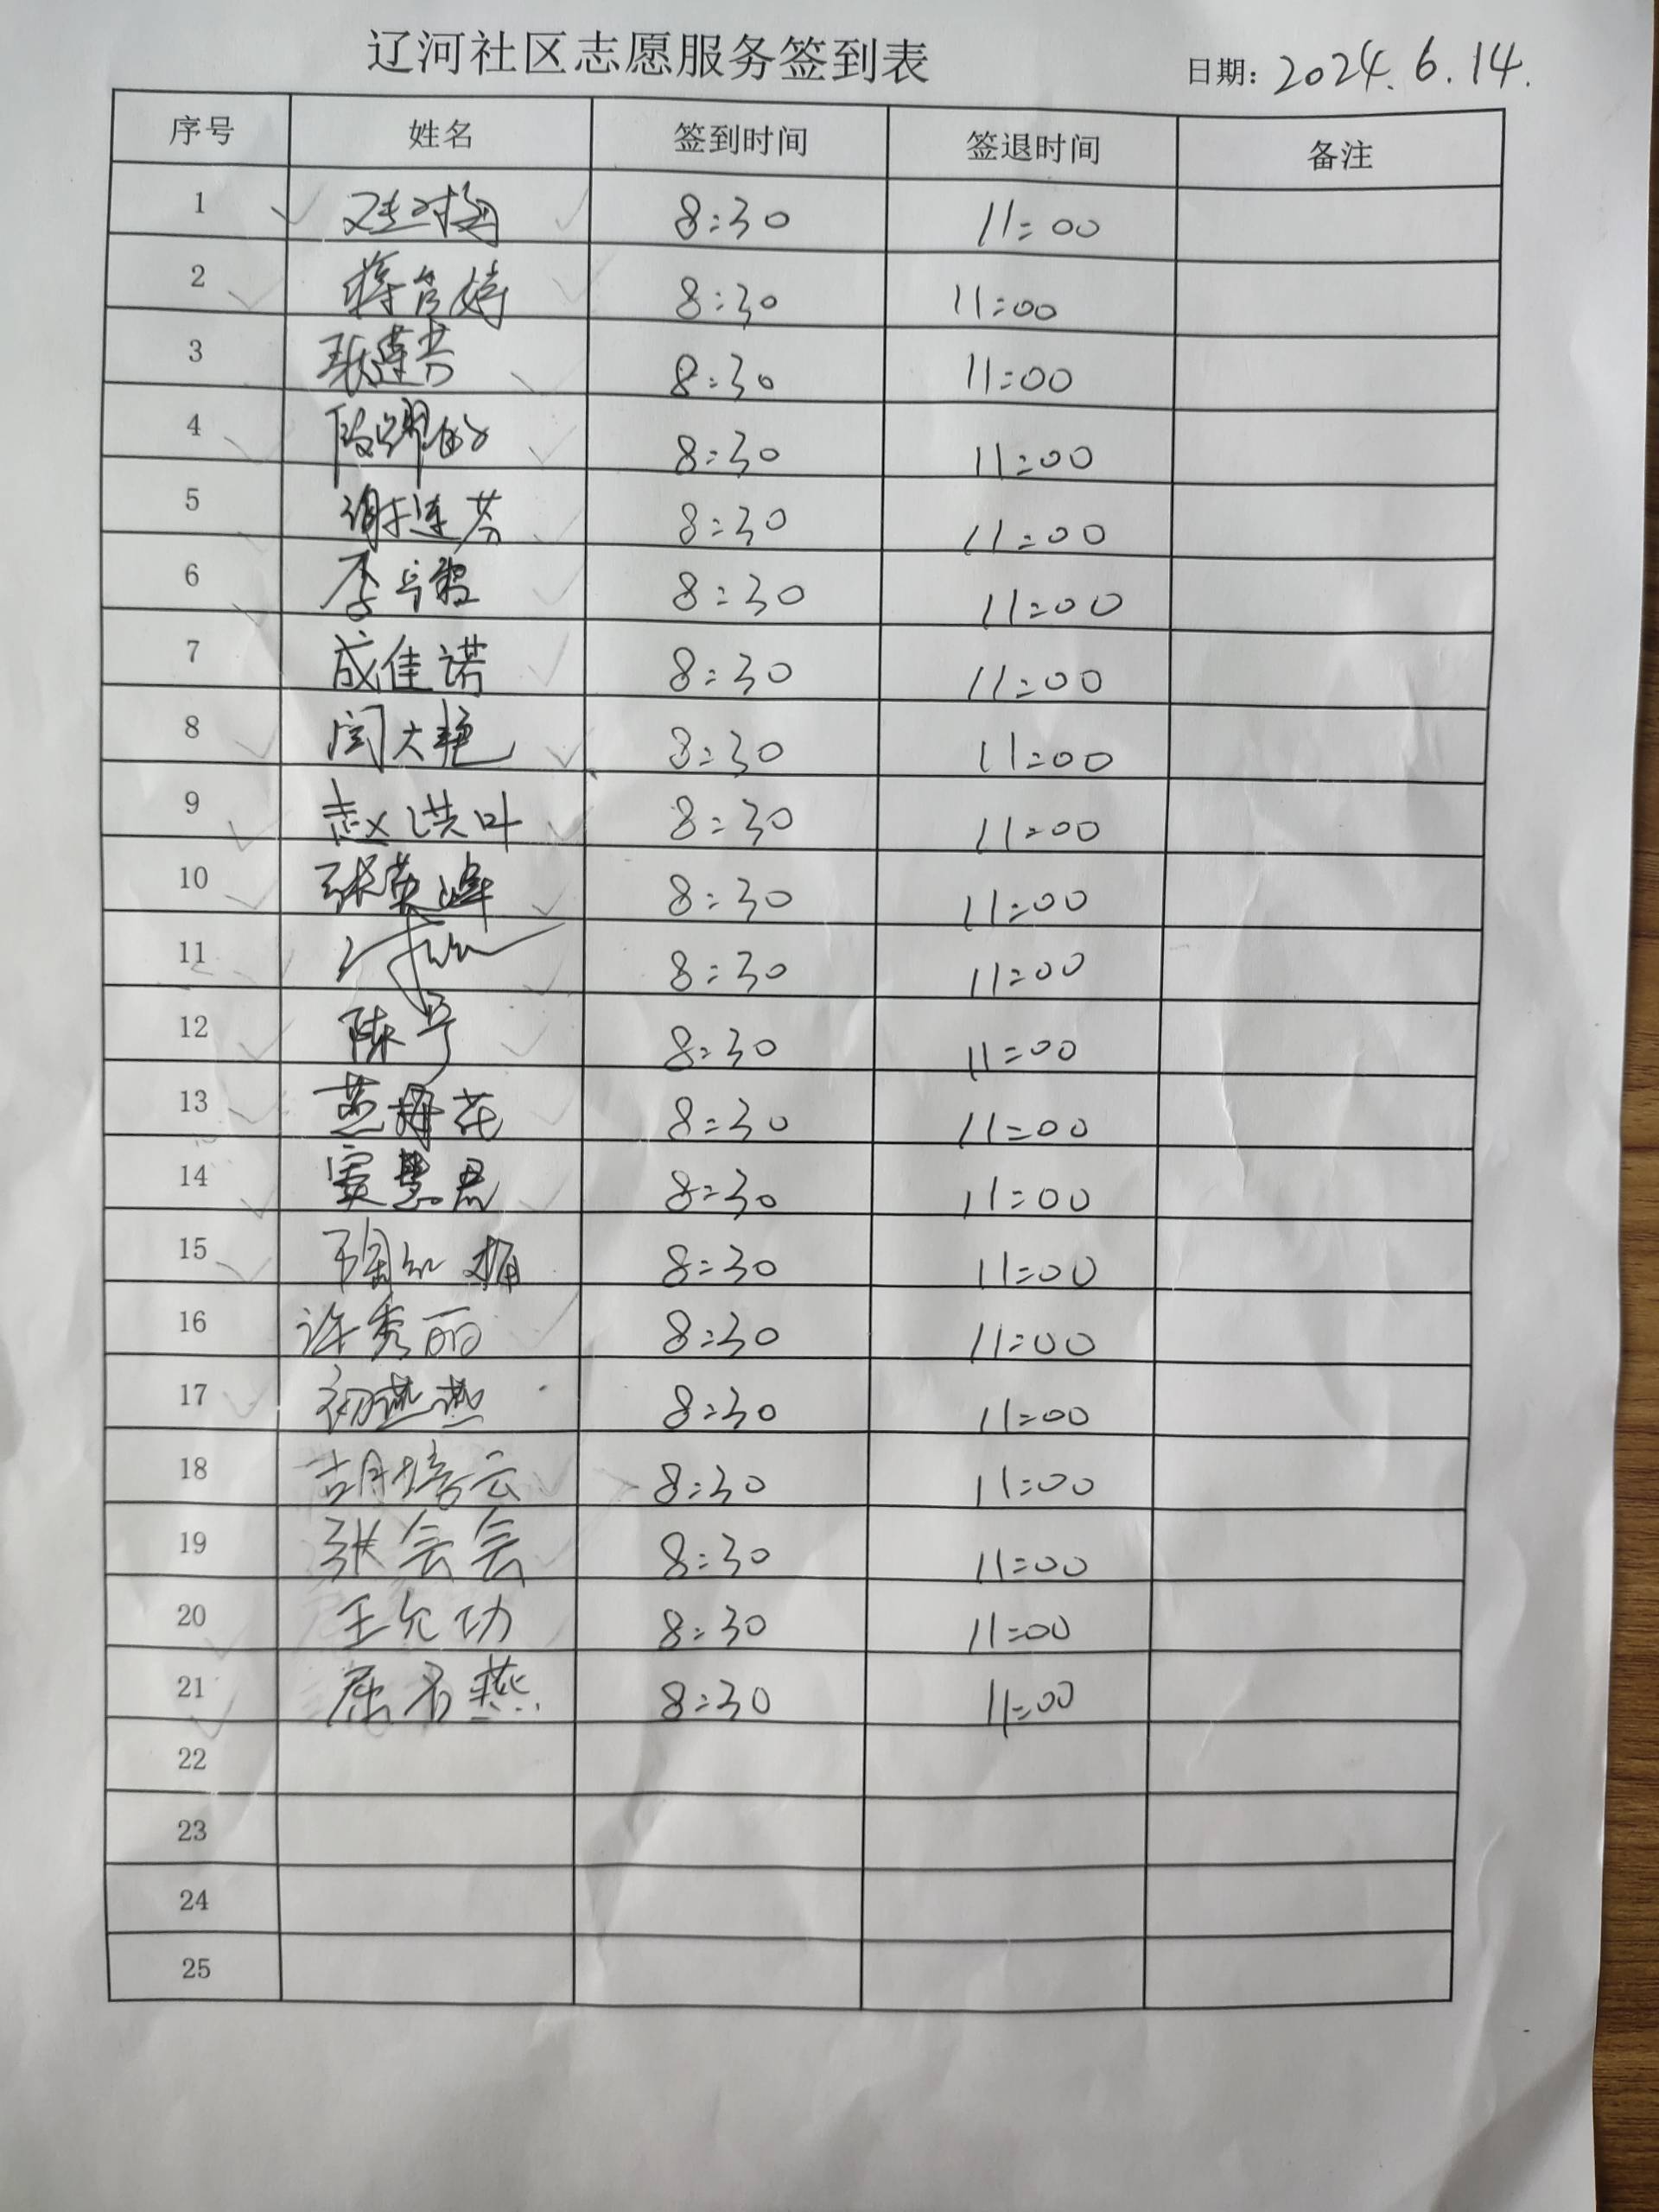 辽河社区志愿服务签到表
日期: 2024.6.14.
序号 姓名 签到时间 签退时间 备注
1 8:30 11:00
2 8:30 11:00
3 8:30 11:00
4 8:30 11:00
5 谢莲芬 8:30 11:00
6 李 8:30 11:00
7 成佳诺 8:30 11:00
8 闫大艳 8:30 11:00
9 赵洪叶 8:30 11:00
10 张英峰 8:30 11:00
11 8:30 11:00
12 陈 8:30 11:00
13 8:30 11:00
14 窦慧君 8:30 11:00
15 8:30 11:00
16 许秀丽 8:30 11:00
17 初燕燕 8:30 11:00
18 胡培云 8:30 11:00
19 张会会 8:30 11:00
20 王允功 8:30 11:00
21 8:30 11:00
22
23
24
25